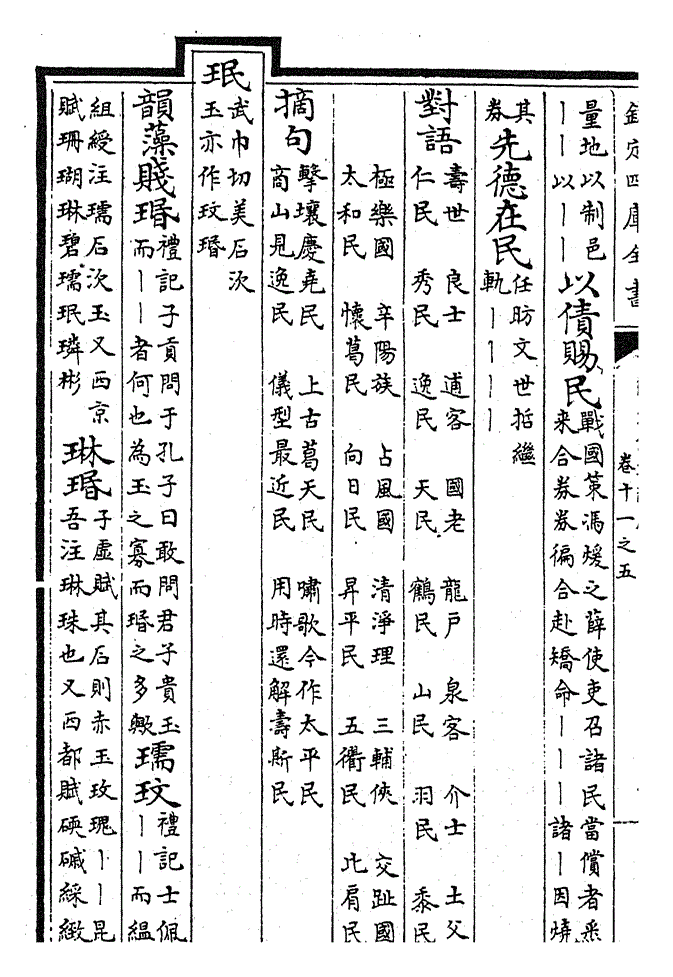 欽定四庫全書
卷十一之五
量地以制邑
丨丨以丨丨
以債賜民
戰國策馮煖之薛使吏召諸民當償者悉
来合券券徧合赴矯命丨丨丨諸丨因燒
其
券
先德在民
任昉文世拓繼
軌丨丨丨丨
對語
壽世 良士 逋客 國老 龍戸 泉客 介士 土父
仁民 秀民 逸民 天民 鶴民 山民 羽民 黍民
極樂國 辛陽族 占風國 清淨理 三輔俠 交趾國
太和民 懷葛民 向日民 昇平民 五衢民 比肩民
摘句
擊壤慶堯民 上古葛天民 嘯歌今作太平民
商山見逸民 儀型最近民 用時還解壽斯民
珉
武巾切美石次
玉亦作玟瑉
韻藻
賤瑉
禮記子貢問于孔子曰敢問君子貴玉
而丨丨者何也為玉之寡而瑉之多歟
瓀玟
禮記士佩
丨丨而緼
組綬注瓀石次玉又西京
賦珊瑚琳碧瓀珉璘彬
琳瑉
子虛賦其石則赤玉玫瑰丨丨昆
吾注琳珠也又西都賦碝磩綵緻